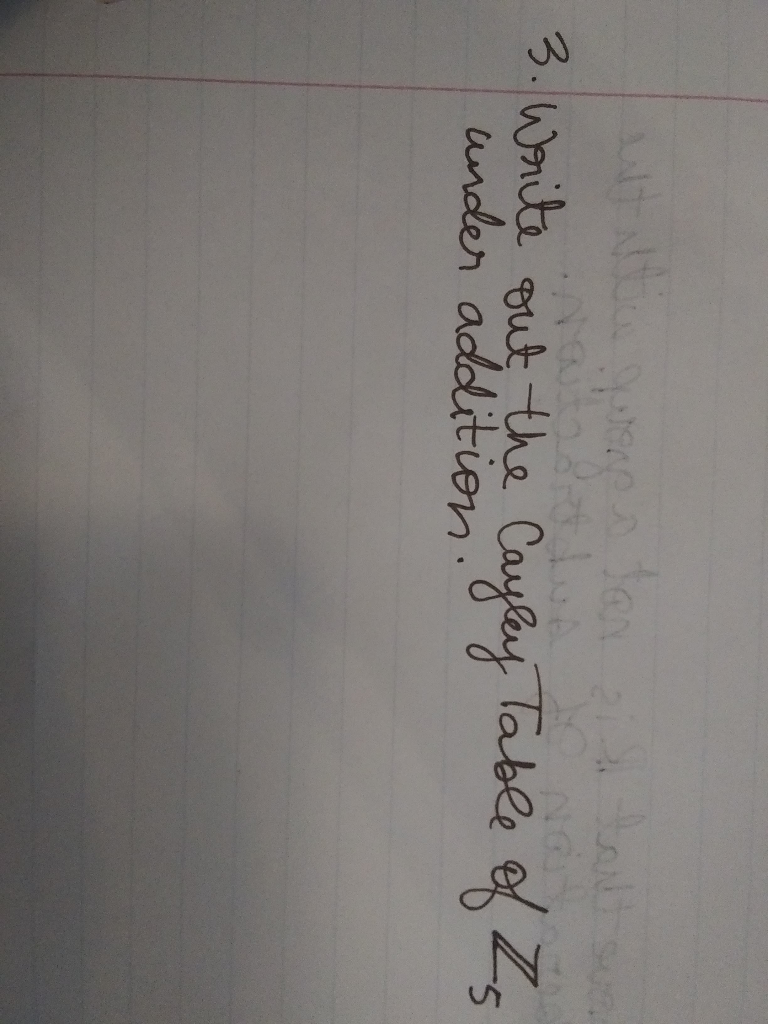 3. Write out the Cayley Table of ℤ₅
under addition.